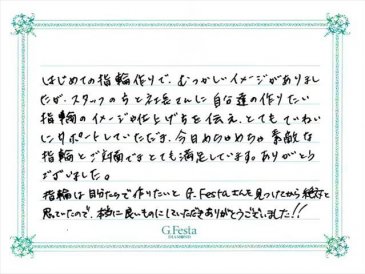 はじめての指輪作りで、むつかしいイメージがありまし
たが、スタッフの方と社長さんに自分達の作りたい
指輪のイメージや仕上げ方を伝え、とてもていねい
にサポートしていただき、今日めちゃめちゃ素敵な
指輪とご対面できとても満足しています。ありがとう
ございました。
指輪は自分たちで作りたいとG.Festaさんを見つけてから絶対と
思っていたので、本当に良いものにしていただきありがとうございました!!
G.Festa
DIAMOND